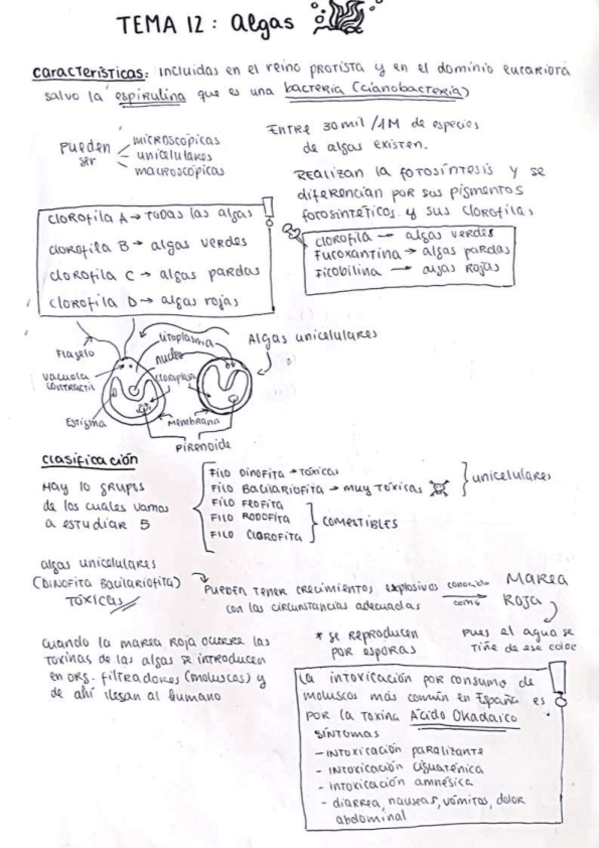 TEMA 12: Algas
características: incluidas en el reino protista y en el dominio eucariora
salvo la espirulina que es una bacteria (cianobacteria)
pueden ser
microscópicas
unicelulares
macroscópicas
Entre 30mil/1M de especies
de algas existen.
Realizan la fotosíntesis y se
diferencian por sus pigmentos
fotosintéticos y sus clorofilas
clorofila A → todas las algas
clorofila B → algas verdes
clorofila C → algas pardas
clorofila D → algas rojas
clorofila — algas verdes
Fucoxantina → algas pardas
Ficobilina → algas rojas
Algas unicelulares
Flagelo
citoplasma
nucleo
vacuola contractil
cloroplasto
Estigma
membrana
pirenoide
clasificación
Hay 10 grupos
de los cuales vamos
a estudiar 5
Filo Dinofita → tóxicas
Filo Bacilariofita → muy tóxicas
unicelulares
Filo Feofita
Filo Rodofita
Filo Clorofita
comestibles
algas unicelulares
(Dinofita Bacilariofita)
TÓXICAS
pueden tener crecimientos explosivos conocido como Marea
con las circunstancias adecuadas
Roja
pues el agua se
tiñe de ese color
cuando la marea roja ocurre las
toxinas de las algas se introducen
en org. filtradores (moluscos) y
de ahí llegan al humano
* se reproducen
por esporas
La intoxicación por consumo de
moluscos más común en España es
por la toxina Ácido Okadaico
síntomas
- intoxicación paralizante
- intoxicación ciguaténica
- intoxicación amnésica
- diarrea, nauseas, vómitos, dolor
abdominal